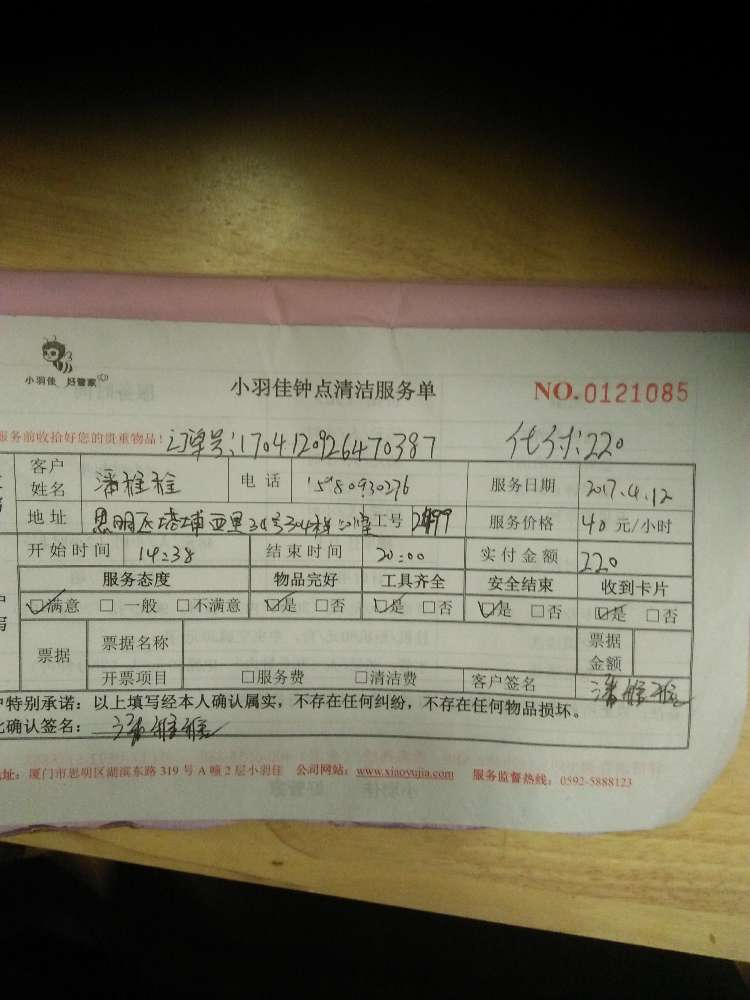 小羽佳 好管家
小羽佳钟点清洁服务单 NO.0121085
服务前收拾好您的贵重物品! 订单号:170412926470387 代付:220
客户姓名 潘 电话 15980930276 服务日期 2017.4.12
地址 思明区塔埔西里 工号 服务价格 40 元/小时
开始时间 14:38 结束时间 20:00 实付金额 220
服务态度 物品完好 工具齐全 安全结束 收到卡片
☑满意 □一般 □不满意 ☑是 □否 ☑是 □否 ☑是 □否 ☑是 □否
票据 票据名称 票据金额
开票项目 □服务费 □清洁费 客户签名 潘
户特别承诺:以上填写经本人确认属实,不存在任何纠纷,不存在任何物品损坏。
此确认签名: 潘
地址:厦门市思明区湖滨东路 319 号 A 幢 2 层小羽佳 公司网站:www.xiaoyujia.com 服务监督热线:0592-5888123